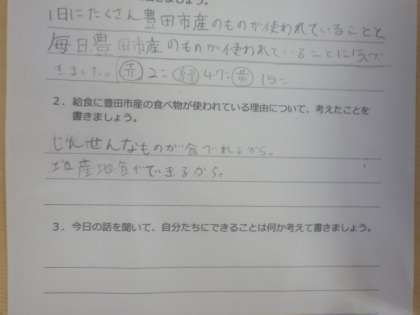 ましょう。
1日にたくさん豊田市産のものが使われていることと、
毎日豊田市産のものが使われていることに気が
きました。赤2こ 緑47こ 黄15こ
2．給食に豊田市産の食べ物が使われている理由について、考えたことを
書きましょう。
しんせんなものが食べれるから。
地産地消ができるから。
3．今日の話を聞いて、自分たちにできることは何か考えて書きましょう。